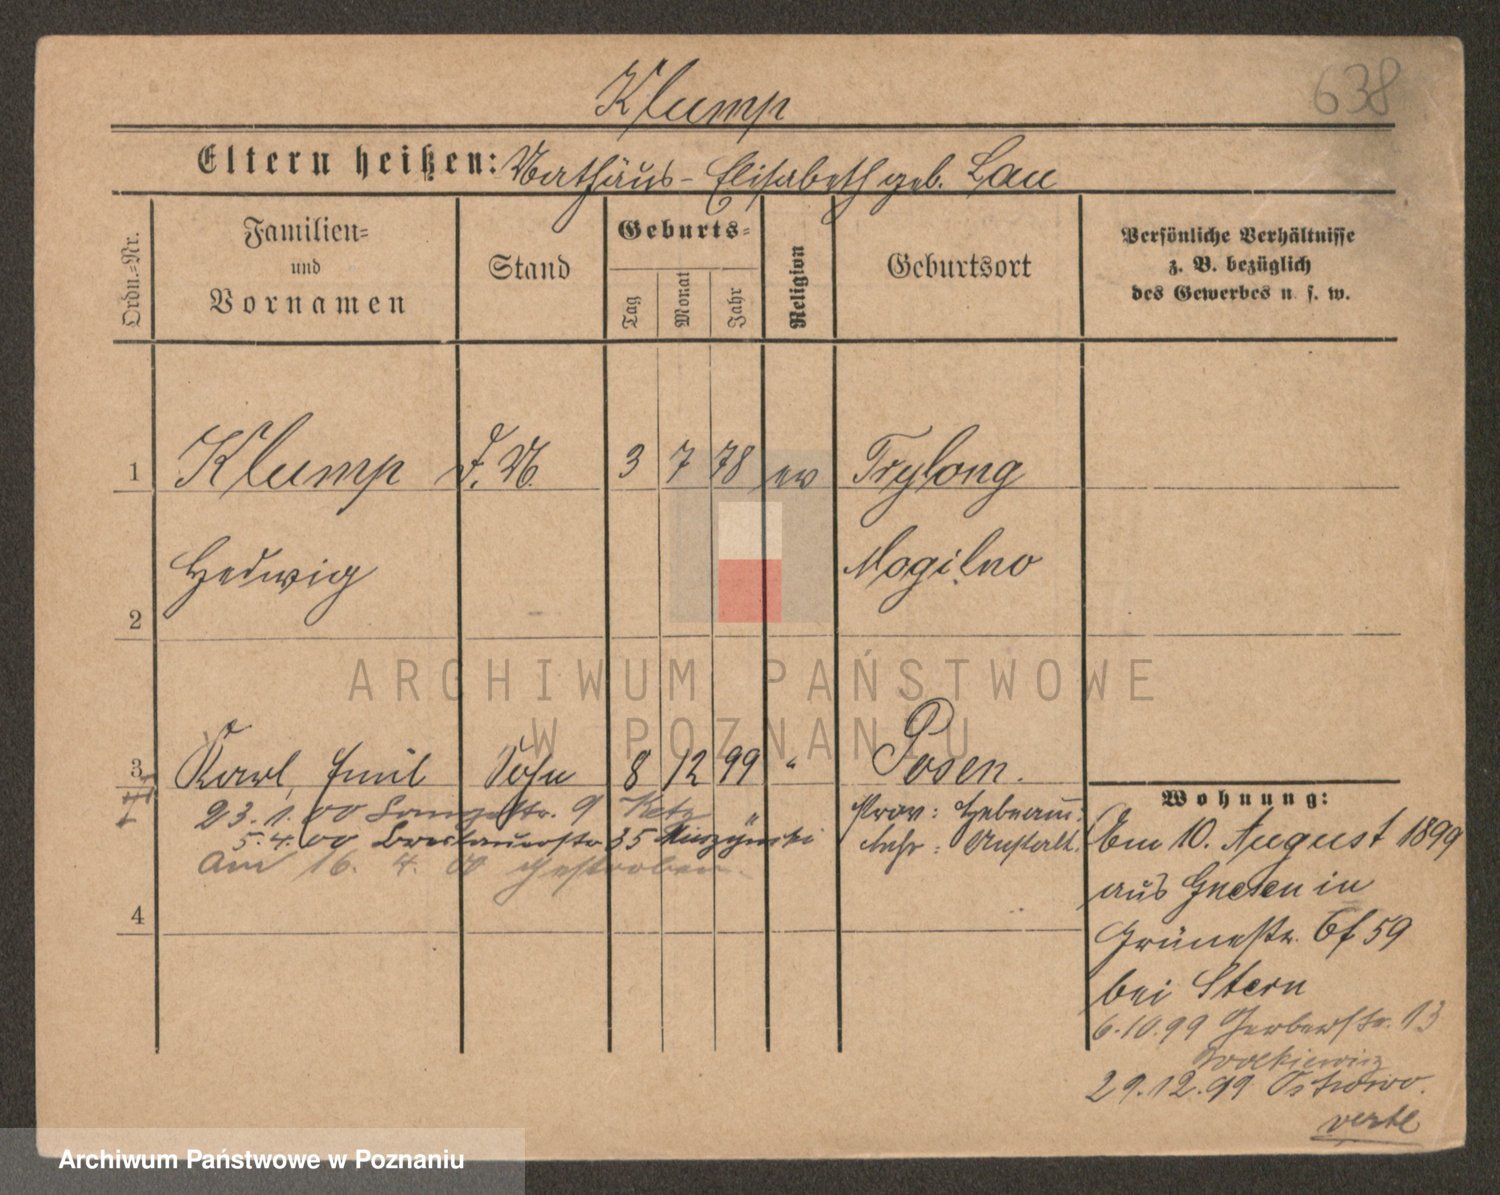 638
Klump
Eltern heißen: Mathäus - Elisabeth geb. Lau
Ordn.=Nr.
Familien=
und
Vornamen
Stand
Geburts=
Tag
Monat
Jahr
Religion
Geburtsort
Persönliche Verhältnisse
z. B. bezüglich
des Gewerbes u. s. w.
1 Klump D. M. 3 7 78 ev Trzlong
Hedwig Mogilno
2
3 Karl, Emil Sohn 8 12 99 " Posen.
23. 1. 00 Langestr. 9 Prov: Hebeam:
5. 4. 00 Breslauerstr 35 Muszynski Lehr: Anstalt.
am 16. 4. 00 gestorben.
4
Wohnung:
Am 10. August 1899
aus Gnesen in
Grünestr. 6 59
bei Stern
6.10.99 Gerberstr. 13
29.12.99 Ostrowo.
verte
ARCHIWUM PAŃSTWOWE
W POZNANIU
Archiwum Państwowe w Poznaniu